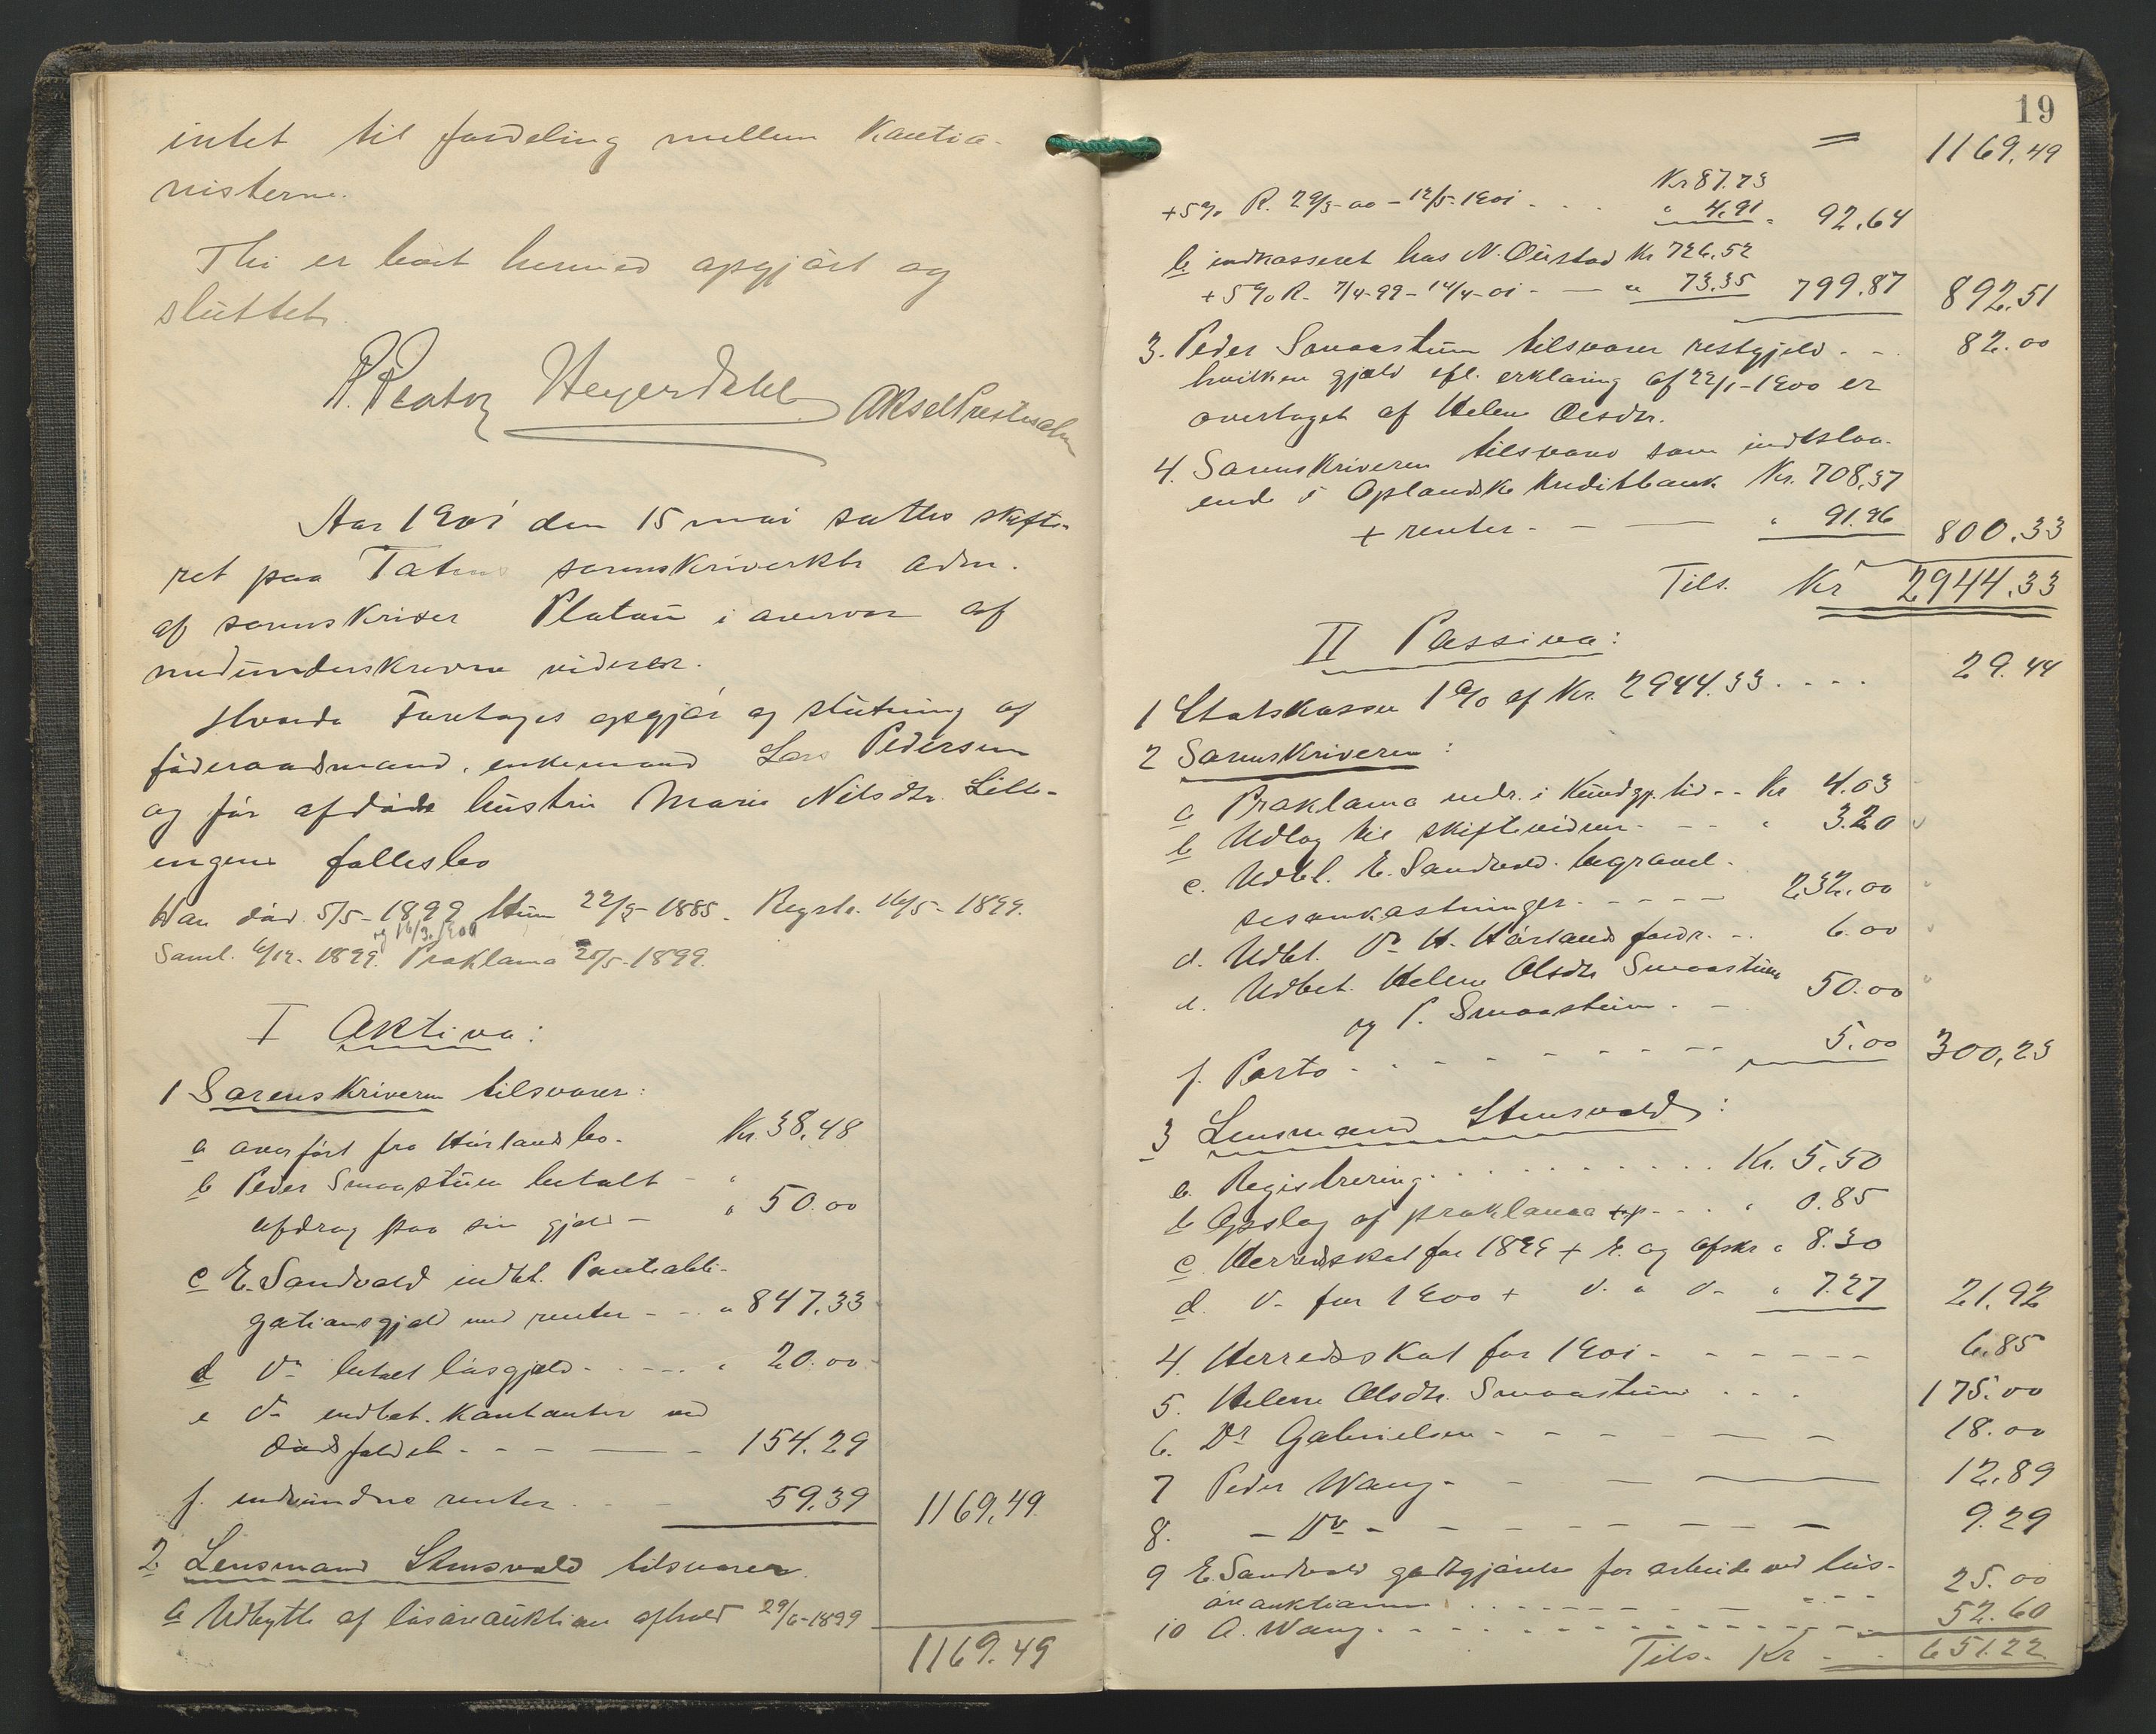 intet til fordeling mellem Kautio-
nisterne.
Thi er boet hermed opgjört og
sluttet.
Heyerdahl Aksel
Aar 1901 den 15 mai sattes skifte-
ret paa sorenskriverktr adm.
af sorenskriver Platou i overvær af
nedunderskrevne vidner.
Hvorda Foretages opgjör og slutning af
föderaadsmand, enkemand Lars Pedersen
og för afdöde hustru Marie Nilsdtr. Lille-
engens fællesbo
Han död 5/5-1899 Hun 22/5-1885. Regstr. 16/5-1899.
og 16/3.1900
Saml. 6/12-1899. Proklama 25/5-1899.
I Aktiva:
1 Sorenskriveren tilsvarer:
a overfört fra Hörlands bo. Kr. 38,48
b Peder Smaastuen betalt - "
afdrag paa sin gjæld - " 50.00
c E. Sandvold indbet. Panteobli-
gationsgjæld med renter - - " 847,33
d Do betalt lösgjæld - - - - " 20.00
e Do indbet. kontanter ved
dödsfaldet - - - - - 154.29
f. indvundne renter . - - 59,39 1169,49
2 Lensmand Stensvold tilsvarer
a Udbytte af lösöreauktion afholdt 29/6-1899
1169.49
19
= 1169,49
Kr 87.73
+5% R. 29/3-00-12/5-1901 - . . " 4,91 " 92,64
b indkasseret hos N. Önstad Kr 726,52
+5% R. 7/4-99-14/4-01 - - " 73.35 799,87 892,51
3. Peder Smaastuen tilsvarer restgjæld . - . 82.00
hvilken gjæld efl. erklæring af 22/1-1900 er
overtaget af Helene Olsdtr.
4. Sorenskriveren tilsvarer som indestaa-
ende i Oplandske Kreditbank Kr. 708,37
+ renter - - - " 91.96 800.33
Tils. Kr 2944.33
II Passiva:
1 Statskassen 1% af Kr. 2944.33 . . . . 29.44
2 Sorenskriveren:
a Proklama indr. i Kundgj. tid - - Kr 4.03
b Udlæg til skiftevidner - - - " 3.20
c. Udbet. E. Sandvold. begravel-
sesomkostninger - - - - - 232.00
d. Udbet. Dr H. Hörlands fordr. - . 6.00
e. Udbet. Helene Olsdtr Smaastuen
og P. Smaastuen . - 50.00
f. Porto - - - - - - - - 5.00 300,23
3 Lensmand Stensvold:
a. Registrering . . . . . . . . . Kr. 5,50
b Opslag af proklama - - . " 0.85
c Herredsskat for 1899 + R. og afskr " 8.30
d. Do for 1900 + Do " Do " 7.27 21,92
4. Herredsskat for 1901 - - - - - - 6.85
5. Helene Olsdtr. Smaastuen . . . 175.00
6. Dr Gabrielsen - - - - - - 18.00
7 Peder Wang - - - - 12.89
8. - Do - - - - - - - - 9.29
9 E. Sandvold godtgjörelse for arbeide ved lös-
öreauktionen - - - - - - - - 25.00
10 A. Wang - - - - - - - - - - - 52.60
Tils. Kr - - 651.22